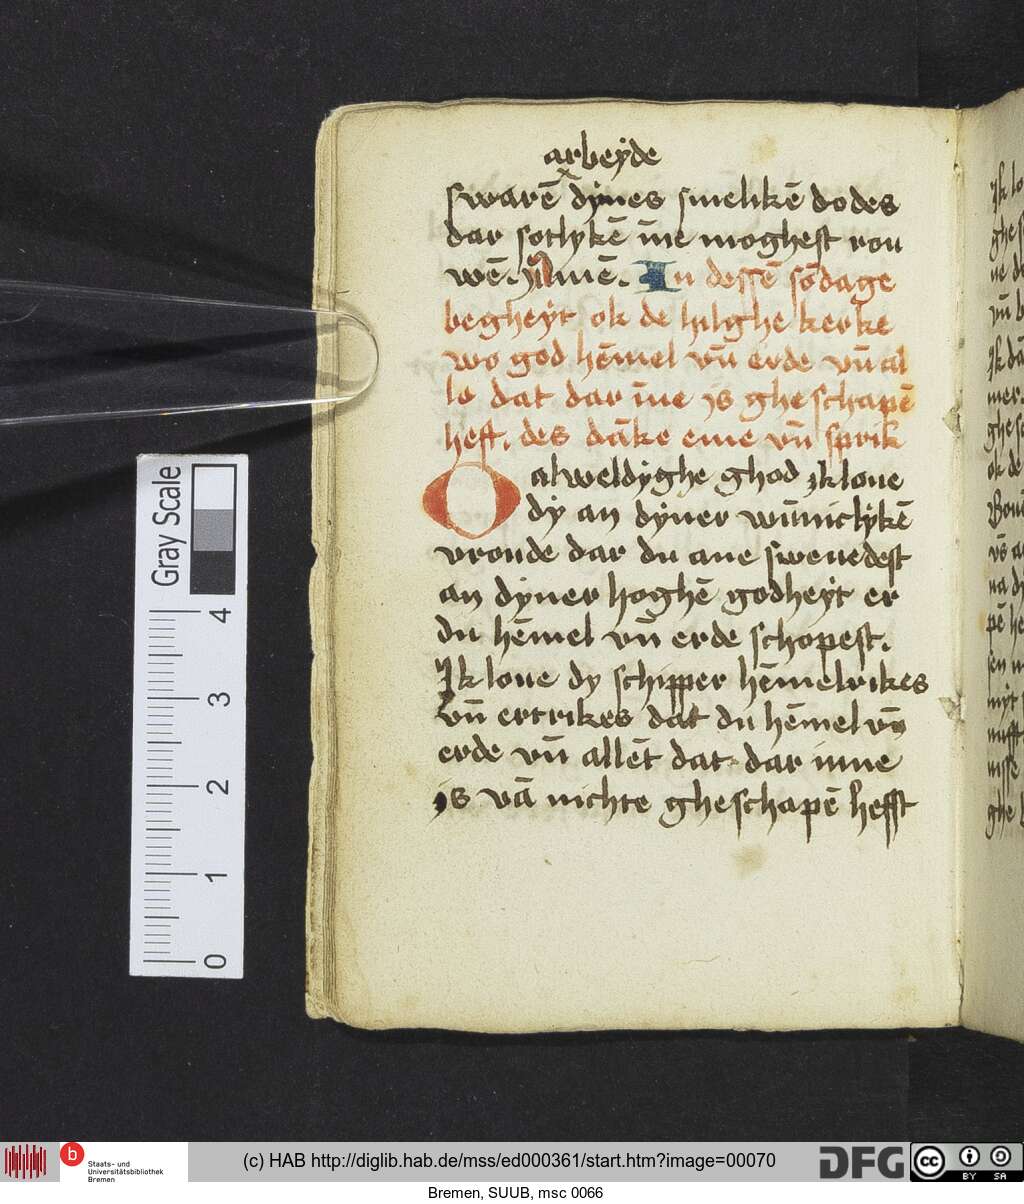 arbeyde
swarē dynes smelikē dodes
dar sotlykē īne moghest rou
wē. Amē. In dessē sōdage
begheyt ok de hilghe kerke
wo god hēmel vn̄ erde vn̄ al
le dat dar īne is gheschapē
heft. des dāke eme vn̄ sprik
O alweldyghe ghod jk loue
dy an dyner wūnichlykē
vroude dar du ane sweuedest
an dyner hoghē godheyt er
du hēmel vn̄ erde schopest.
Jk loue dy schipper hēmelrikes
vn̄ ertrikes dat du hēmel vn̄
erde vn̄ allēt dat dar inne
is vā nichte gheschapē hefft
Gray Scale
4
3
2
1
0
b
Staats- und
Universitätsbibliothek
Bremen
(c) HAB http://diglib.hab.de/mss/ed000361/start.htm?image=00070
DFG
cc
BY SA
Bremen, SUUB, msc 0066